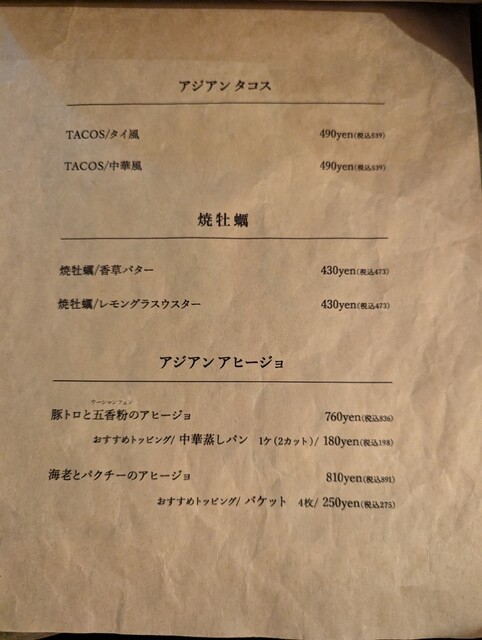 アジアン タコス
TACOS/タイ風 490yen(税込539)
TACOS/中華風 490yen(税込539)
焼牡蠣
焼牡蠣/香草バター 430yen(税込473)
焼牡蠣/レモングラスウスター 430yen(税込473)
アジアン アヒージョ
ウーシャンフェン
豚トロと五香粉のアヒージョ 760yen(税込836)
おすすめトッピング/ 中華蒸しパン 1ケ(2カット)/ 180yen(税込198)
海老とパクチーのアヒージョ 810yen(税込891)
おすすめトッピング/ バケット 4枚/ 250yen(税込275)